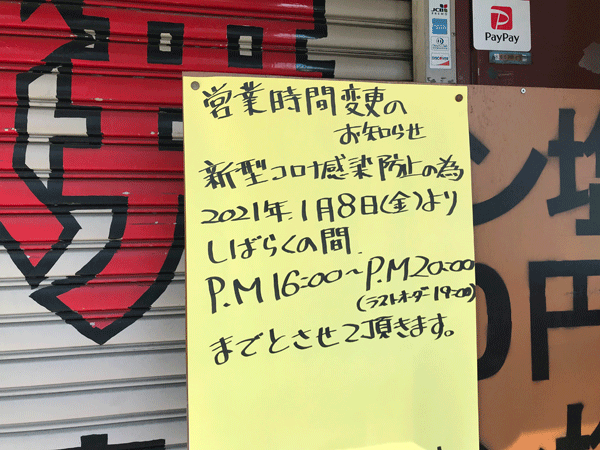 営業時間変更の
お知らせ
新型コロナ感染防止の為
2021年1月8日(金)より
しばらくの間
P.M 16:00〜P.M 20:00
(ラストオーダー19:00)
までとさせて頂きます。
JCB
DISCOVER
PayPay
ン塩
0円